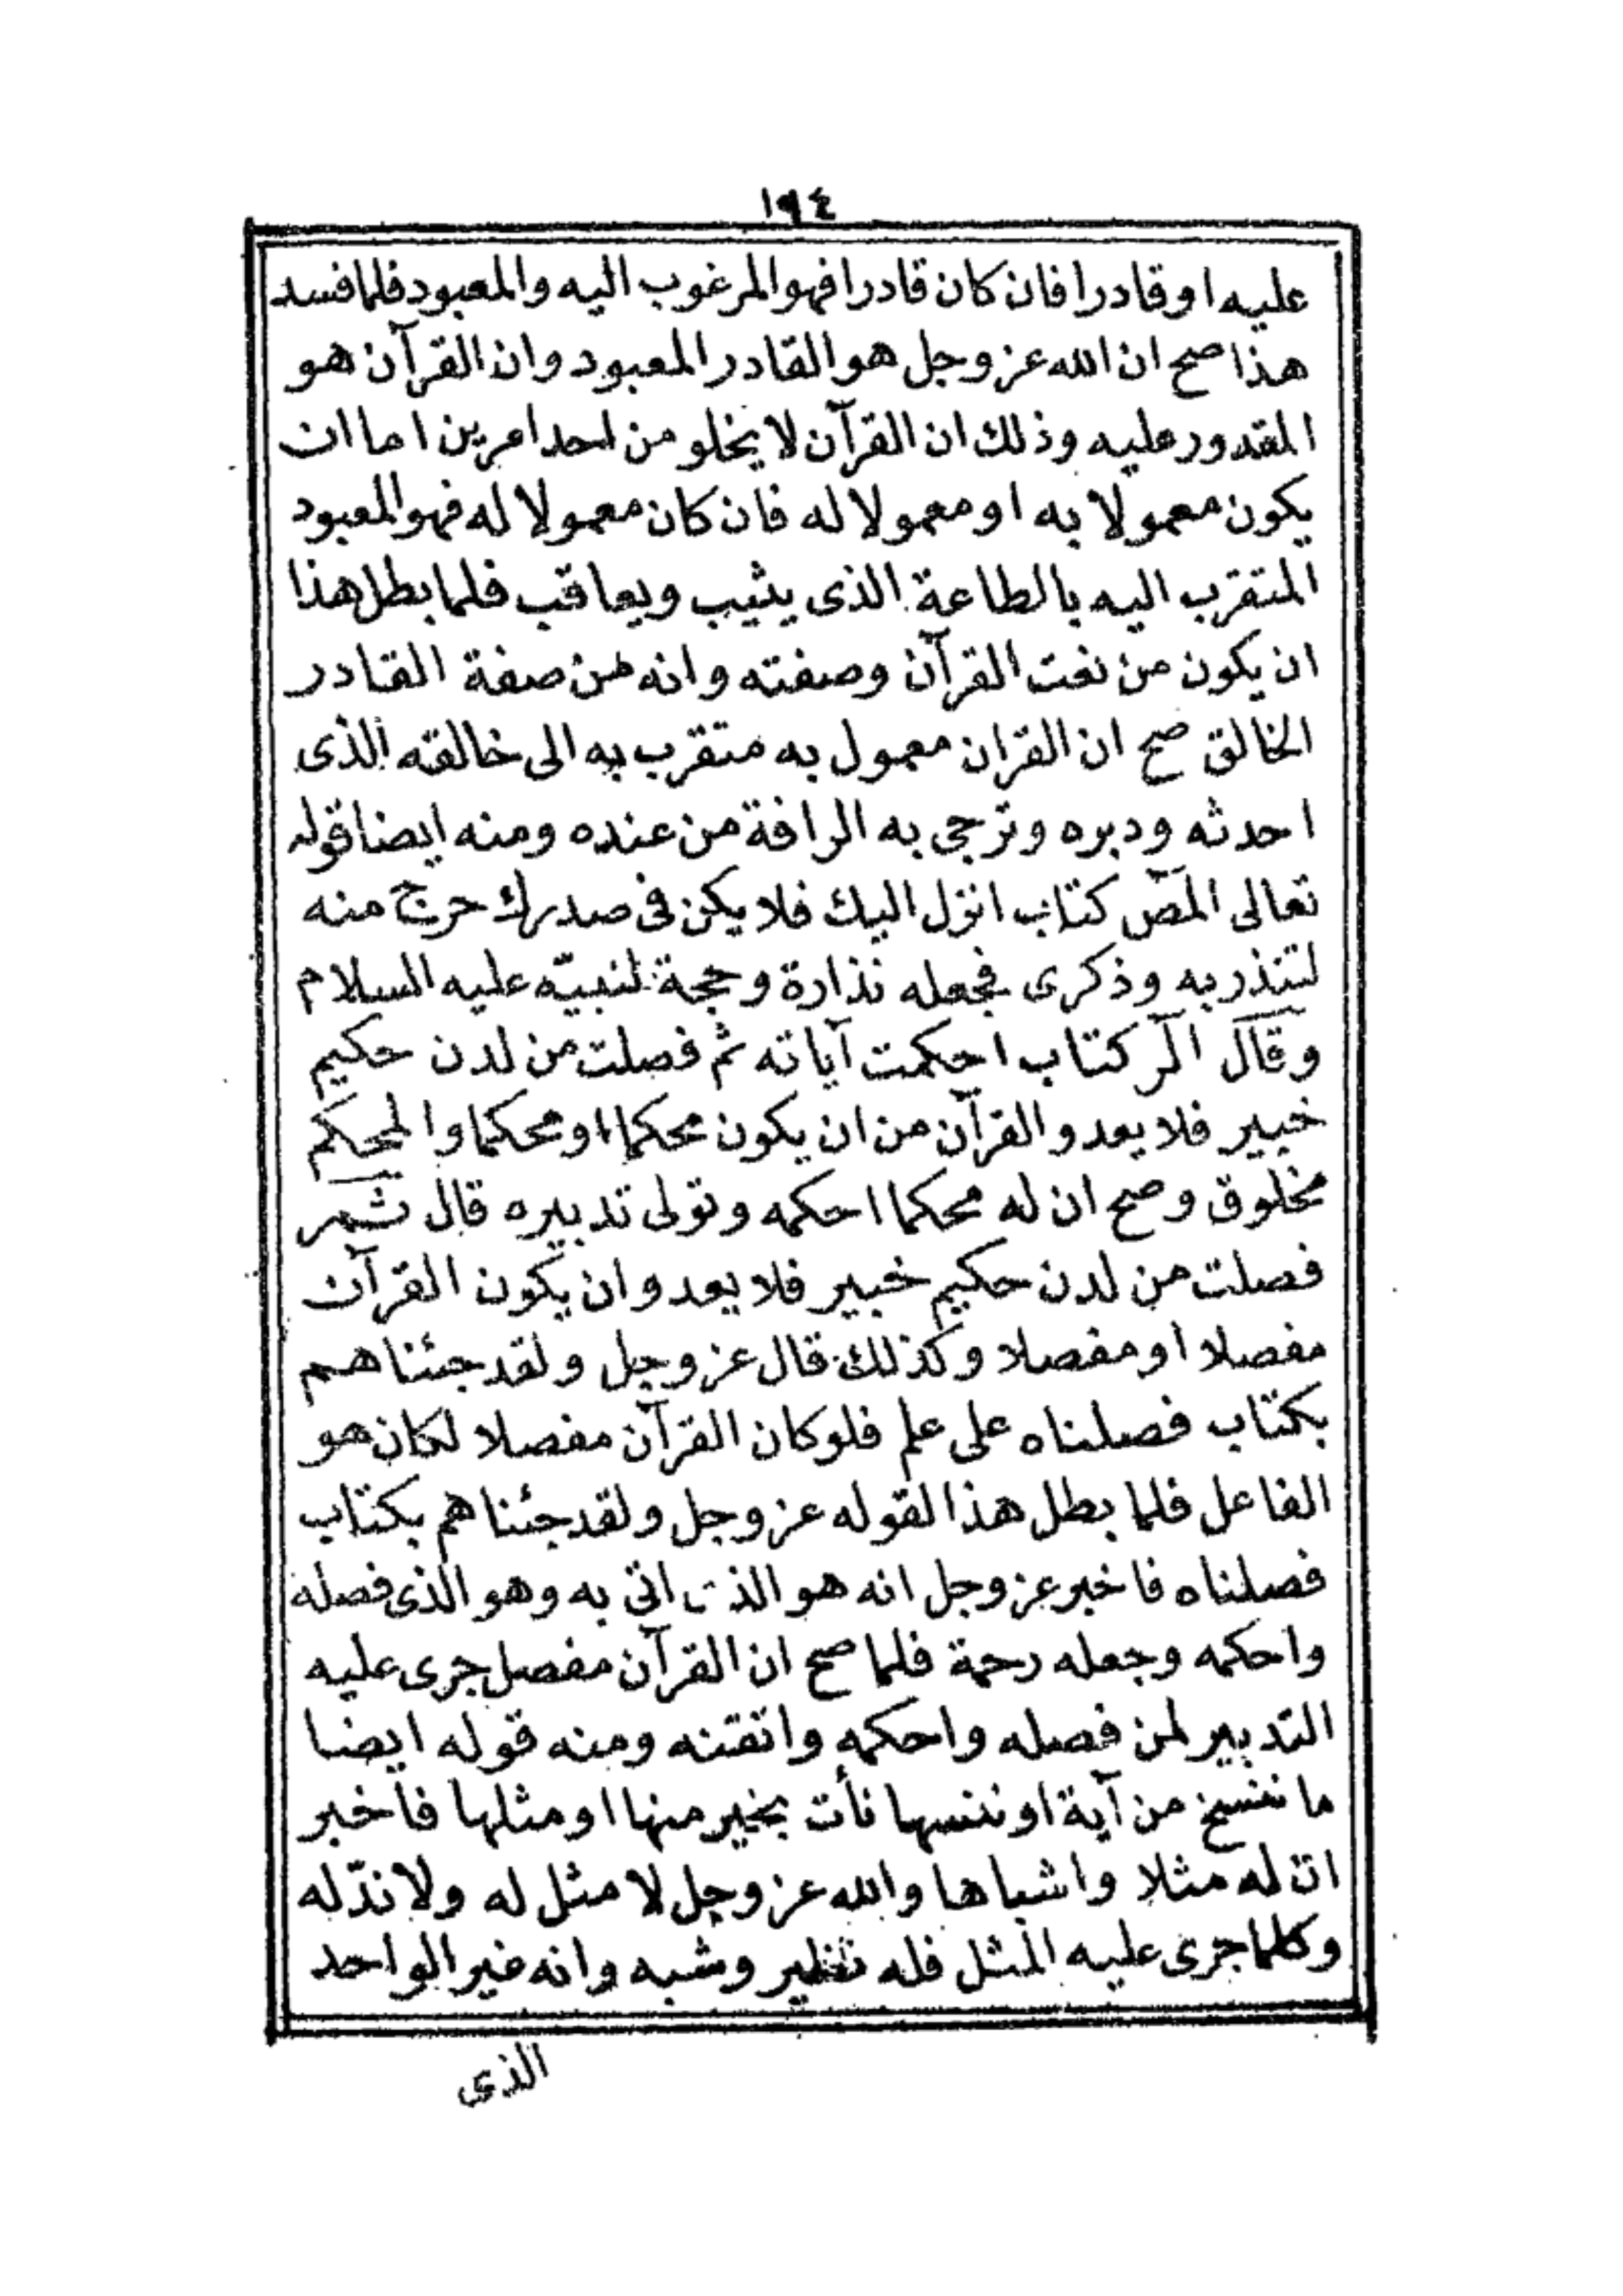 ١٩٤
عليه او قادرا فان كان قادرا فهو المرغوب اليه والمعبود فلما فسد
هذا صح ان الله عز وجل هو القادر المعبود وان القرآن هو
المقدور عليه وذلك ان القرآن لا يخلو من احد امرين اما ان
يكون معمولا به او معمولا له فان كان معمولا له فهو المعبود
المتقرب اليه بالطاعة الذى يثيب ويعاقب فلما بطل هذا
ان يكون من نعت القرآن وصفته وانه من صفة القادر
الخالق صح ان القران معمول به متقرب به الى خالقه الذى
احدثه ودبره وترجى به الرافة من عنده ومنه ايضا قوله
تعالى المص كتاب انزل اليك فلا يكن فى صدرك حرج منه
لتنذر به وذكرى فجعله نذارة وحجة لنبيّه عليه السلام
وقال الر كتاب احكمت آياته ثم فصلت من لدن حكيم
خبير فلا يعدو القرآن من ان يكون محكما او محكما والمحكم
مخلوق وصح ان له محكما احكمه وتولى تدبيره قال ثم
فصلت من لدن حكيم خبير فلا يعدو ان يكون القرآن
مفصلا او مفصلا وكذلك قال عز وجل ولقد جئناهم
بكتاب فصلناه على علم فلو كان القرآن مفصلا لكان هو
الفاعل فلما بطل هذا لقوله عز وجل ولقد جئناهم بكتاب
فصلناه فاخبر عز وجل انه هو الذى اتى به وهو الذى فصله
واحكمه وجعله رحمة فلما صح ان القرآن مفصل جرى عليه
التدبير لمن فصله واحكمه واتقنه ومنه قوله ايضا
ما ننسخ من آية او ننسها نأت بخير منها او مثلها فاخبر
ان له مثلا واشباها والله عز وجل لا مثل له ولا ندّ له
وكلما جرى عليه المثل فله نظير وشبه وانه غير الواحد
الذى